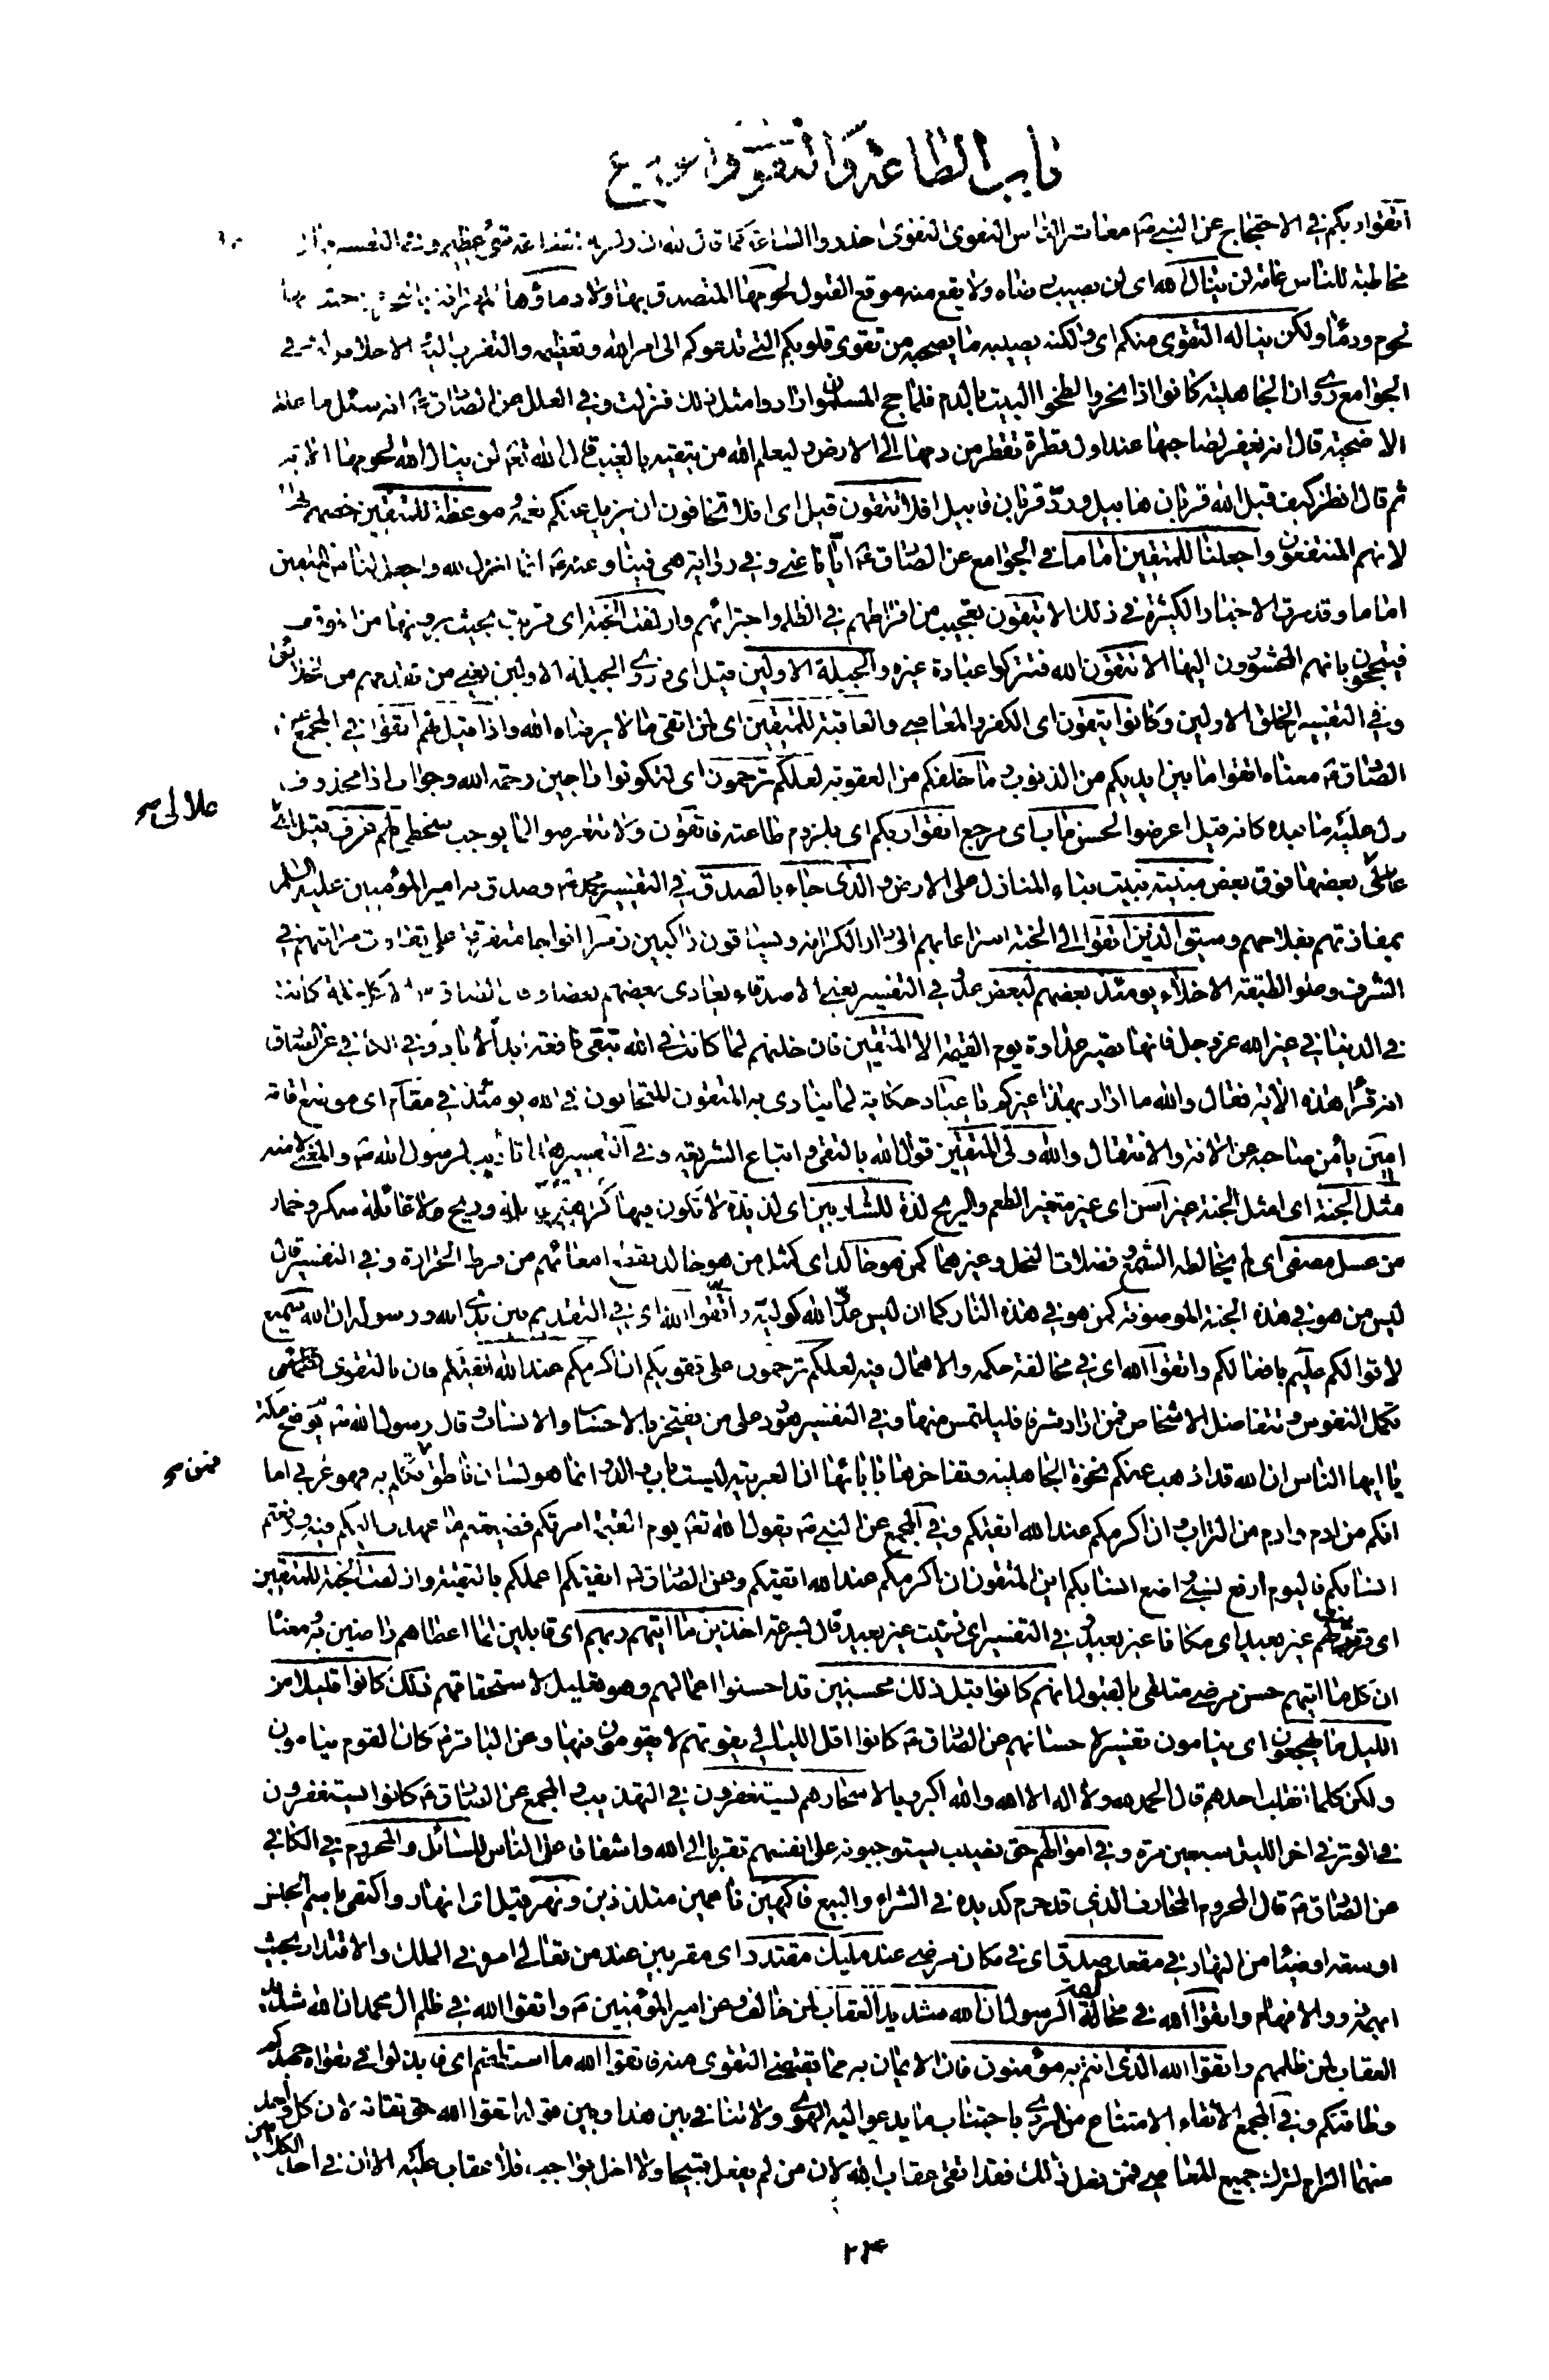 باب الطاعة والتقوى والورع
اتقوا ربكم في الاحتجاج عن النبي ص معاشر الناس التقوى التقوى احذروا الساعة كما قال الله ان زلزلة الساعة شيء عظيم وفي التفسير
مخاطبة للناس عامة لن ينال الله اى لن يصيب رضاه ولا يقع منه موقع القبول لحومها المتصدق بها ولا دماؤها المهراقة بالنحر من حيث انها
لحوم ودماء ولكن يناله التقوى منكم اى ولكنه يصيبه ما يصحبه من تقوى قلوبكم التي تدعوكم الى امر الله وتعظيمه والتقرب اليه والاخلاص له في
الجوامع روى ان الجاهلية كانوا اذا نحروا لطخوا البيت بالدم فلما حج المسلمون ارادوا مثل ذلك فنزلت وفي العلل عن الصادق ع انه سئل ما علة
الاضحية قال انه يغفر لصاحبها عند اول قطرة تقطر من دمها الى الارض وليعلم الله من يتقيه بالغيب قال الله تعم لن ينال الله لحومها الاية
ثم قال انظر كيف قبل الله قربان هابيل ورد قربان قابيل افلا تتقون قيل اى افلا تخافون ان يزيل عنكم نعمه موعظة للمتقين خصهم بها
لانهم المنتفعون واجعلنا للمتقين اماما في الجوامع عن الصادق ع ايانا عنى وفي رواية هى فينا وعنه ع انما انزل الله واجعل لنا من المتقين
اماما وقد مرت الاخبار الكثيرة في ذلك الا يتقون تعجيب من افراطهم في الظلم واجترائهم وازلفت الجنة اى قربت بحيث يرونها من الموقف
فيتبجحون بانهم المحشورون اليها الا تتقون الله فتتركوا عبادة غيره والجبلة الاولين قيل اى وذوى الجبلة الاولين يعني من تقدمهم من الخلائق
وفي التفسير الخلق الاولين وكانوا يتقون اى الكفر والمعاصي والعاقبة للمتقين اى لمن اتقى ما لا يرضاه الله واذا قيل لهم اتقوا في المجمع عن
الصادق ع معناه اتقوا ما بين ايديكم من الذنوب وما خلفكم من العقوبة لعلكم ترحمون اى لتكونوا راجين رحمة الله وجواب اذا محذوف
دل عليه ما بعده كانه قيل اعرضوا لحسن ماب اى مرجع اتقوا ربكم اى بلزوم طاعته فاتقون ولا تتعرضوا لما يوجب سخطي لهم غرف قيل اى
علالي بعضها فوق بعض مبنية بنيت بناء المنازل على الارض والذى جاء بالصدق في التفسير محمد ص وصدق به امير المؤمنين عليه السلم
علالي صح
بمفازتهم بفلاحهم وسيق الذين اتقوا الى الجنة اسراعا بهم الى دار الكرامة ويساقون راكبين زمرا افواجا متفرقة على تفاوت مراتبهم في
الشرف وعلو الطبقة الاخلاء يومئذ بعضهم لبعض عدو في التفسير يعني الاصدقاء يعادى بعضهم بعضا وقال الصادق ع الا كل خلة كانت
في الدنيا في غير الله عز وجل فانها تصير عداوة يوم القيمة الا المتقين فان خلتهم لما كانت في الله تبقى نافعة ابد الاباد وفي الكافي عن الصادق
انه قرا هذه الاية فقال والله ما اراد بهذا غيركم يا عباد حكاية لما ينادى به المتقون المتحابون في الله يومئذ في مقام اى موضع اقامة
امين يأمن صاحبه عن الافة والانتقال والله ولى المتقين قوال الله بالتقى واتباع الشريعة وفي التفسير هذا تأديب لرسول الله ص والمعنى لامته
مثل الجنة اى امثل الجنة غير اسن اى غير متغير الطعم والريح لذة للشاربين اى لذيذة لا تكون فيها كراهية وريح ولا غائلة سكر وخمار
من عسل مصفى اى لم يخالطه الشمع وفضلات النحل وغيرهما كمن هو خالد اى كمثل من هو خالد يقطع امعائهم من فرط الحرارة وفي التفسير قال
ليس من هو في هذه الجنة الموصوفة كمن هو في هذه النار كما ان ليس عدو الله كوليه واتقوا الله اى في التقديم بين يدى الله ورسوله ان الله سميع
لاقوالكم عليم بافعالكم واتقوا الله اى في مخالفة حكمه والاهمال فيه لعلكم ترحمون على تقويكم ان اكرمكم عند الله اتقيكم فان بالتقوى
تكمل النفوس وتتفاضل الاشخاص فمن اراد شرفا فليلتمس منها وفي التفسير هو رد على من يفتخر بالاحساب والانساب وقال رسول الله ص يوم فتح مكة
يا ايها الناس ان الله قد اذهب عنكم نخوة الجاهلية وتفاخرها بابائها ان العربية ليست باب والد وانما هو لسان ناطق تكلم به فهو عربي اما
فمن صح
انكم من ادم وادم من التراب وان اكرمكم عند الله اتقيكم وفي المجمع عن النبي ص يقول الله تعم يوم القيمة امرتكم فضيعتم ما عهدت اليكم فيه ورفعتم
انسابكم فاليوم ارفع نسبي واضع انسابكم اين المتقون ان اكرمكم عند الله اتقيكم وعن الصادق ع اتقيكم اعملكم بالتقية وازلفت الجنة للمتقين
اى قربت لهم غير بعيد اى مكانا غير بعيد وفي التفسير اى زينت غير بعيد قال بسرعة اخذين ما اتيهم ربهم اى قابلين لما اعطاهم راضين به معناه
ان كل ما اتيهم حسن مرضي متلقى بالقبول انهم كانوا قبل ذلك محسنين قد احسنوا اعمالهم وهو تعليل لاستحقاقهم ذلك كانوا قليلا من
الليل ما يهجعون اى ينامون تفسير لاحسانهم عن الصادق ع كانوا اقل الليالي يفوتهم لا يقومون فيها وعن الباقر ع كان القوم ينامون
ولكن كلما انقلب احدهم قال الحمد لله ولا اله الا الله والله اكبر وبالاسحار هم يستغفرون في التهذيب والمجمع عن الصادق ع كانوا يستغفرون
في الوتر في اخر الليل سبعين مرة وفي اموالهم حق نصيب يستوجبونه على انفسهم تقربا الى الله واشفاقا على الناس للسائل والمحروم في الكافي
عن الصادق ع قال المحروم المحارف الذي قد حرم كد يده في الشراء والبيع فاكهين ناعمين متلذذين ونهر قيل اى انهار واكتفى باسم الجنس
او سعة او ضياء من النهار في مقعد صدق اى في مكان مرضي عند مليك مقتدر اى مقربين عند من تعالى امره في الملك والاقتدار بحيث
ابهم ذوو الافهام واتقوا الله في مخالفة الرسول ان الله شديد العقاب لمن خالف وعن امير المؤمنين ع واتقوا الله في ظلم ال محمد ان الله شديد
العقاب لمن ظلمهم واتقوا الله الذى انتم به مؤمنون فان الايمان به مما يقتضى التقوى منه فاتقوا الله ما استطعتم اى فابذلوا في تقواه جهدكم
وطاقتكم وفي المجمع الاتقاء الامتناع من الردى باجتناب ما يدعو اليه الهوى ولا تنافي بين هذا وبين قوله اتقوا الله حق تقاته لان كل واحد من
منهما الزام لترك جميع المعاصي فمن فعل ذلك فقد اتقى عقاب الله لان من لم يفعل قبيحا ولا اخل بواجب فلا عقاب عليه الا ان في احد
الكلامين
٢٣٤